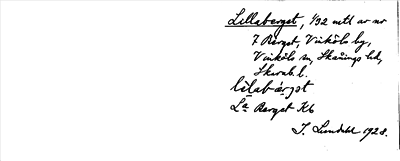 Lillaberget, 1/32 mtl av nr
7 Berget, Vinköls by,
Vinköls sn, Skånings hd,
Skarab. l.
lilabárjet
La Berget Kb
J. Lundahl 1928.